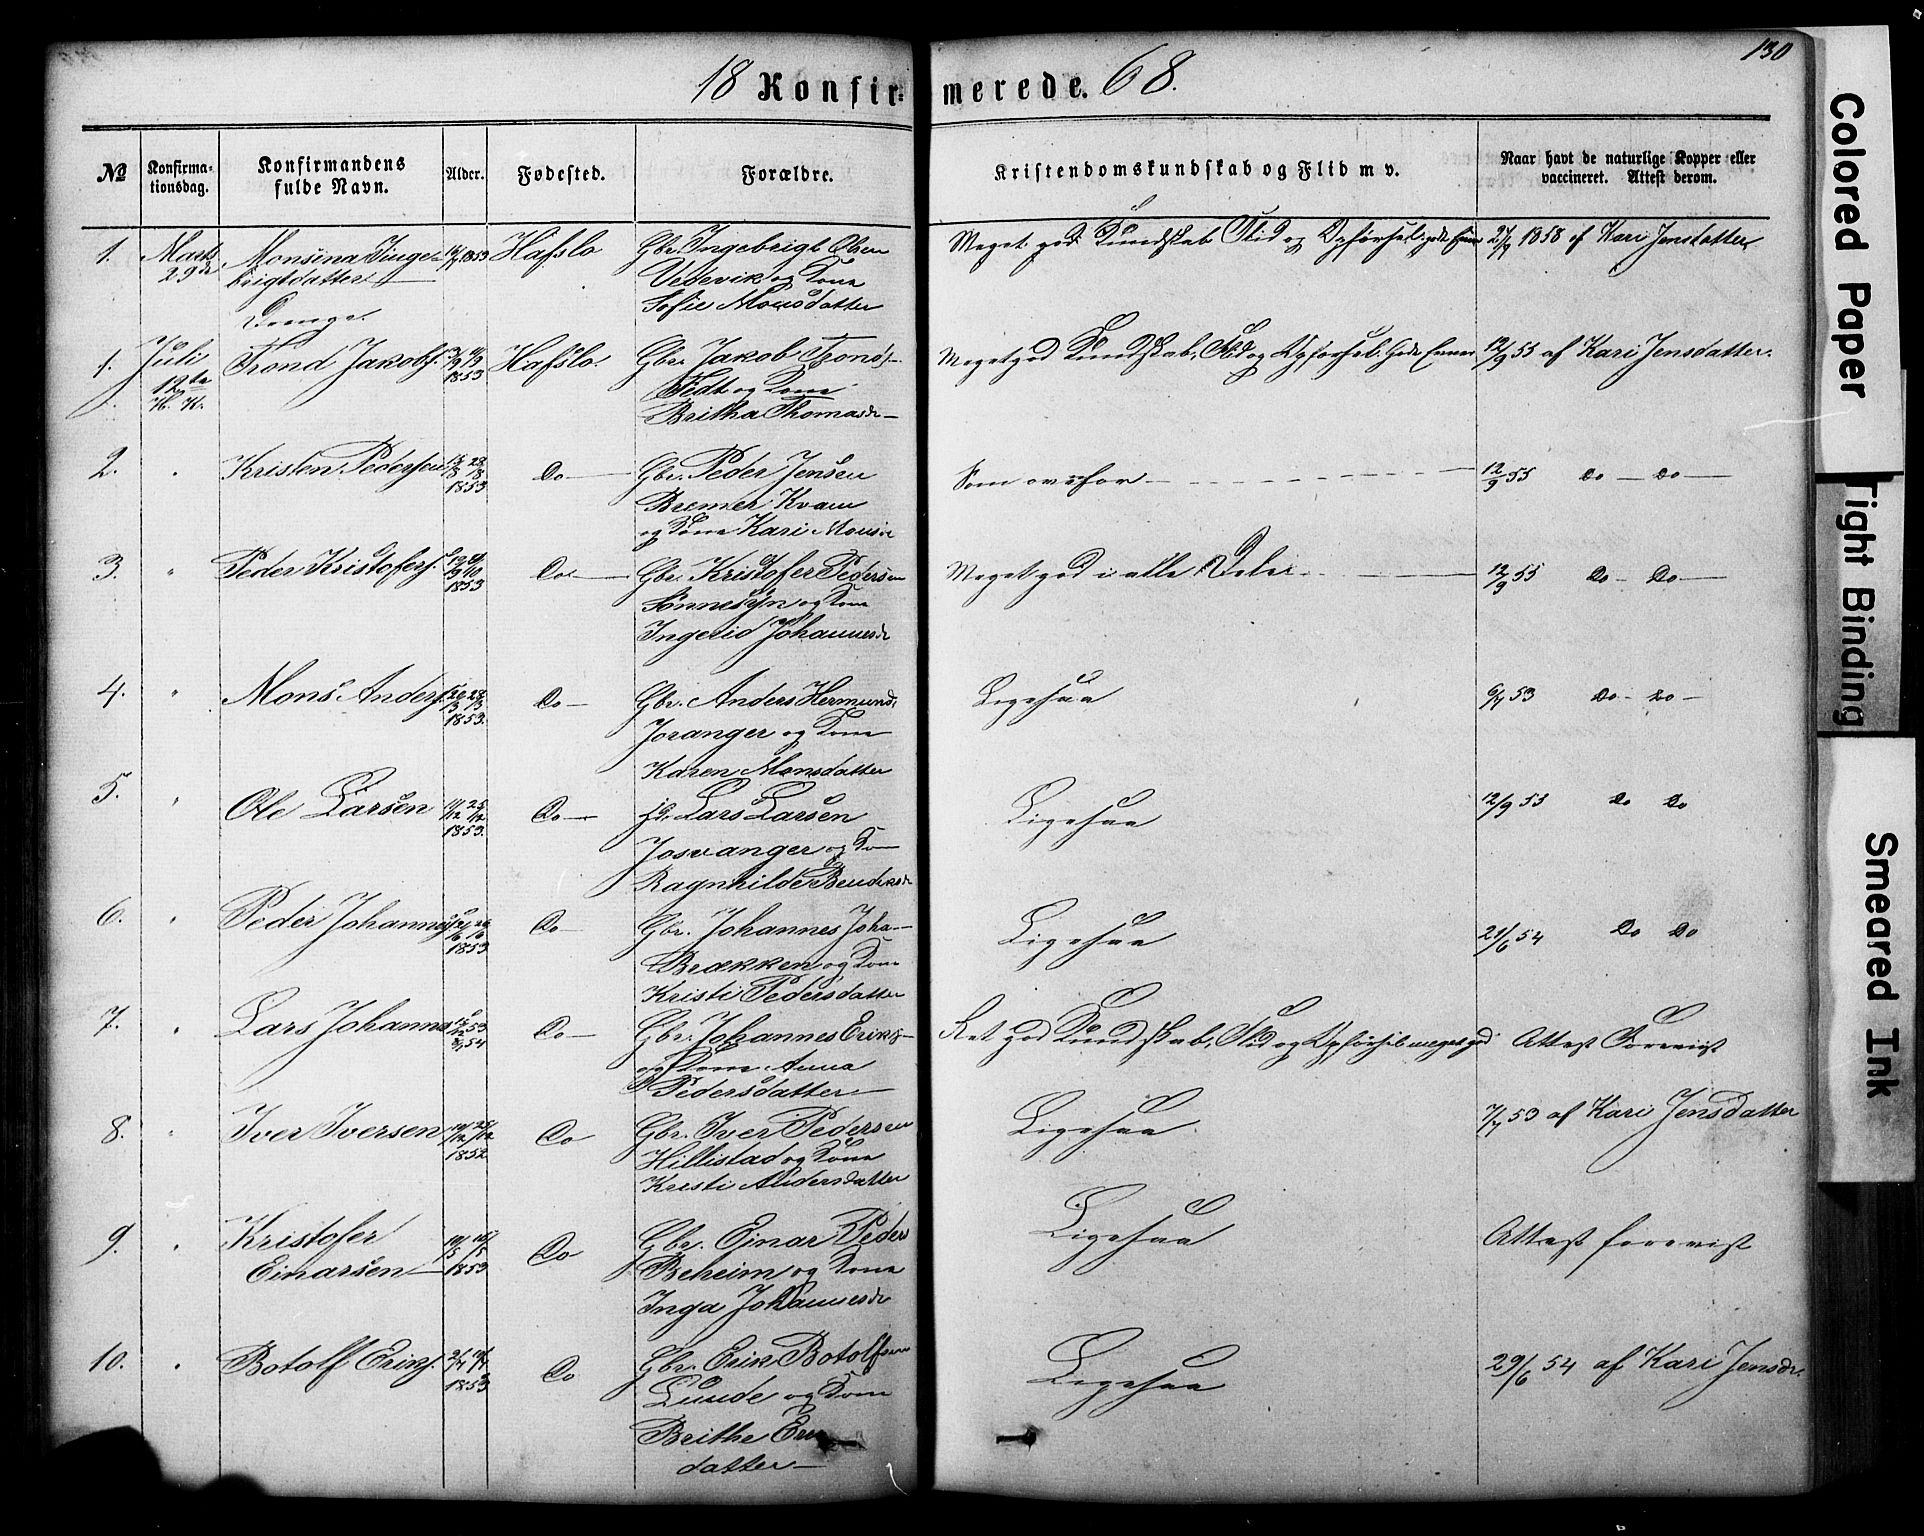 130
18 Konfir- merede. 68.
№ Konfirma-tionsdag. Konfirmandens fulde Navn. Alder. Fødested. Forældre. Kristendomskundskab og Flid m v. Naar havt de naturlige Kopper eller vaccineret. Attest derom.
1. Marts Monsina Inge- 1853 Hafslo Gbr. Ingebrigt Olsen Meget god Kundskab Flid og Opførsel gode Evner 1858 af Kari Jensdatter
29de brigtdatter Vedvik og Kone
Sofie Monsdatter
Drenge.
1. Juli Trond Jakobs. 1853 Hafslo. Gbr. Jakob Tronds. Meget god Kundskab, Flid og Opførsel. Gode Evner 12/9 55 af Kari Jensdatter.
12te og Kone
Britha Thomasdr
2. " Kristen Pedersen 1853 Do Gbr. Peder Jensen Som ovenfor 12/9 55 Do Do
Bremer Kvam
og Kone Kari Monsdr
3. " Peder Kristofers. 1853 Do Gbr. Kristofer Pedersen Meget god i alle Dele 12/9 55 Do Do
Sønnesyn og Kone
Ingerid Johannesdr
4. " Mons Anders. 1853. Do Gbr. Anders Hermunds. Ligesaa 53 Do Do
Joranger og Kone
Karen Monsdatter
5. " Ole Larsen 1853. Do Lars Larsen Ligesaa 12/9 53 Do Do
Josvanger og Ko
Ragnhilde Bendiksdr
6. " Peder Johannes. 1853 Do Gbr. Johannes Joha- Ligesaa 21/6 54 Do Do
Brækken og Kone
Kristi Pedersdatter
7. " Lars Johannes 53 54 Do Gbr. Johannes Eriks. Ret god Kundskab, Flid og Opførsel meget god Attest Forevist
og Kone Anna
Pedersdatter
8. " Iver Iversen 1852 Do Gbr. Iver Pedersen Ligesaa 53 af Kari Jensdatter
Hillestad og Kone
Kristi Andersdatter
9. " Kristofer 1853 Do Gbr. Einar Peders Ligesaa Attest forevist
Einarsen Beheim og Kone
Inga Johannesdr
10. " Botolf Eriks. 1853 Do Gbr. Erik Botolfsen Ligesaa 29/6 54 af Kari Jensdr.
Lunde og Kone
Brithe
datter
Colored Paper
Tight Binding
Smeared Ink